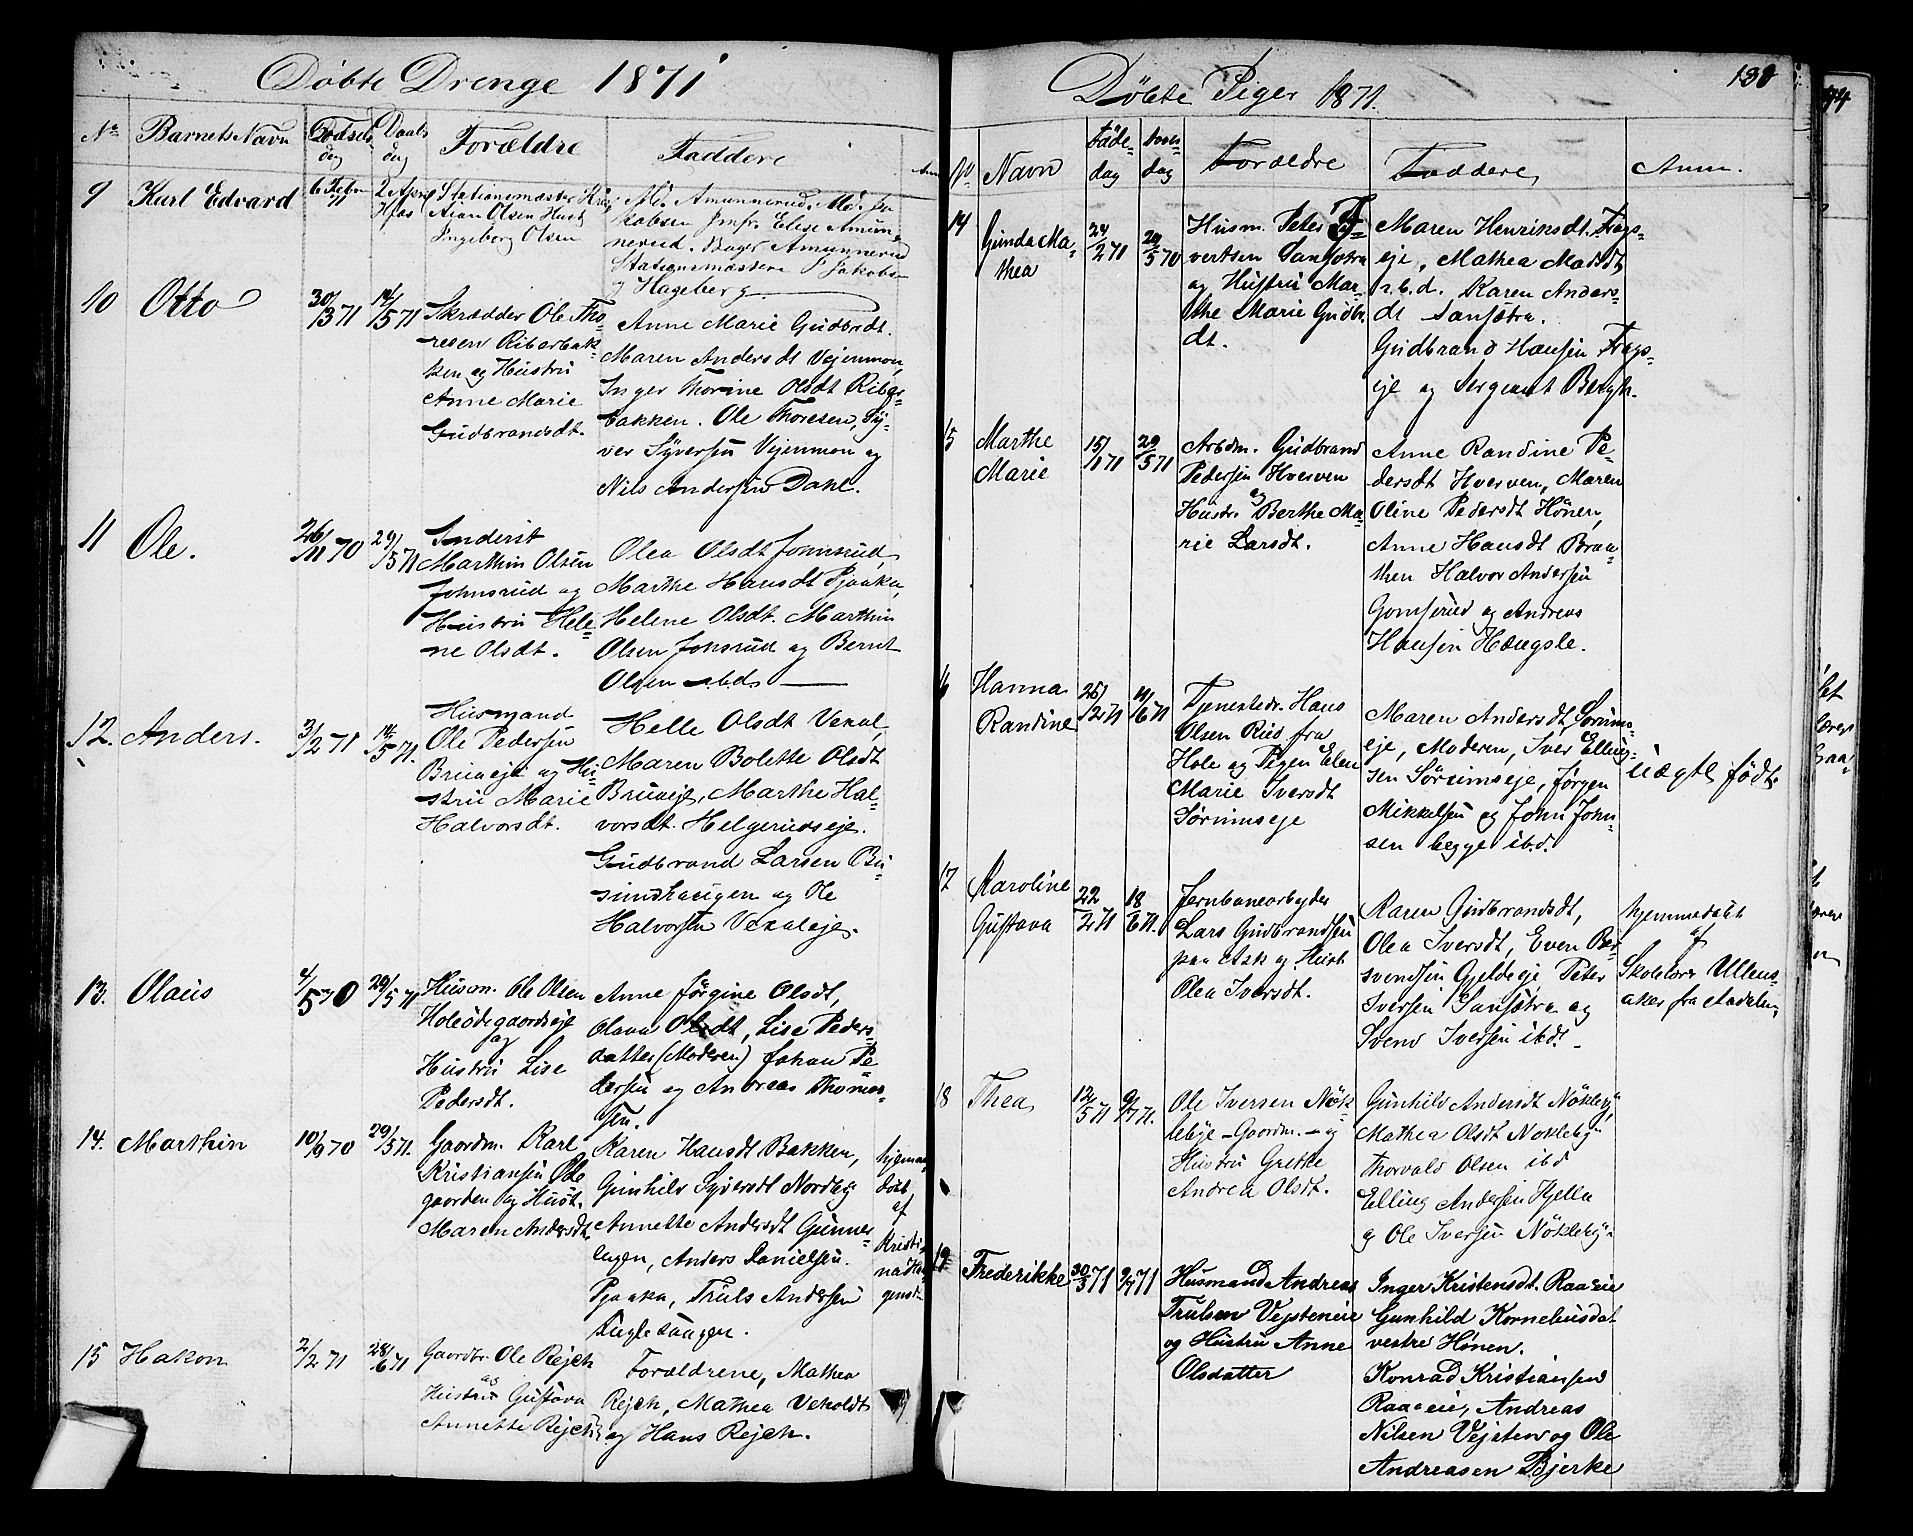 Döbte Drenge 1871
No Barnets Navn Födsels dag Daabs dag Forældre Faddere
9 Karl Edvard 6 Febr 71 2 April Hjdøbt
Stationsmæster
Olsen Hust
Ingeborg Olsen
Md. Amunnerud. Md. Ja
kobsen Jmfr. Elise Amun=
nerud. Bager Amunnerud
Stationsmæstere P Jakobsen
og Hageberg
10 Otto 30/3 71 14/5 71
Skrædder Ole Tho=
resen Ribarbak=
ken og Hustru
Anne Marie
Gudbrandsdt.
Anne Marie Gudbrdt.
Maren Andersdt Vejenmon,
Inger Thorine Olsdt Ribar=
bakken. Ole Thoresen, Sy=
ver Syversen Vejenmon og
Nils Andersen Dahl.
11 Ole. 26/11 70 29/5 71
Inderst
Marthin Olsen
Johnsrud og
Hustru Hele=
ne Olsdt.
Olea Olsdt Johnsrud,
Marthe Hansdt Pjaaka,
Helene Olsdt. Marthin
Olsen Jonsrud og Bernt
Olsen ibd.
12. Anders. 3/2 71 14/5 71.
Husmand
Ole Pedersen
Brueeje og Hu=
stru Marie
Halvorsdt.
Helle Olsdt Vexal,
Maren Bolette Olsdt
Brueeje, Marthe Hal=
vorsdt. Helgerudseje.
Gudbrand Larsen Bu=
simshaugen og Ole
Halvorsen Vexaleje.
13. Olaus 4/5 70 29/5 71
Husm. Ole Olsen
Holeödegaardseje
og
Hustru Lise
Pedersdt.
Anne Jörgine Olsdt,
Olava Olsdt, Lise Peders=
datter (Moderen) Johan Pe=
dersen og Andreas Thomas=
sen.
14. Marthin 10/9 70 29/5 71.
Gaardm. Karl
Kristiansen Öde
gaarden og Hust.
Maren Andersdt.
Karen Hansdt Bakken,
Gunhild Syversdt Nordby
Annette Andersdt Gunners=
engen, Anders Danielsen
Pjaaka, Truls Andersen
Fuglehaugen.
hjemme
döbt
af
Kristi
na
15 Hakon 2/2 71 28/6 71
Gaardbr. Ole Rejch
og
Hustru Gustava
Annette Rejch
Forældrene, Mathea
Rejch, Mathea Veholdt
og Hans Rejch.
Döbte Piger 1871.
No Navn Føde= dag Daabs= dag Forældre Faddere Anm.
14 Gunda Ma=
thea
24/2 71 29/5 70
Husm. Peter
vertsen Sansötra
og Hustru Mar=
the Marie Gudbr.
dt.
Maren Henriksdt. Frogs=
eje, Mathea Madsdt
ibd. Karen Anders=
dt Sansötra.
Gudbrand Hansen Frogs=
eje og Sergeant Bergh.
15 Marthe
Marie
15/1 71 29/5 71
Arbdm. Gudbrand
Pedersen Hverven
og
Hustr. Berthe Ma=
rie Larsdt.
Anne Randine Pe=
dersdt Hverven, Maren
Oline Pedersdt Hönen,
Anne Hansdt Braa=
then Halvor Andersen
Gomsrud og Andreas
Hansen Hængsle.
16 Hanna
Randine
25/2 71 11/6 71
Tjenestedr. Hans
Olsen Rud fra
Hole og Pigen Elen
Marie Iversdt
Sörumseje
Maren Andersdt, Sörums=
eje, Moderen, Iver Elling=
sen Sörumseje, Jørgen
Mikkelsen og John John=
sen begge ibd.
uægte födt.
17 Karoline
Gustava
22/2 71 18/6 71.
Jernbanearbejder
Lars Gudbrandsen
paa Ask og Hust
Olea Iversdt.
Karen Gudbrandsdt,
Olea Iversdt, Even Ber=
svendsen Gjeldeje, Peter
Iversen Sansötra og
Svend Iversen ibd.
hjemmedöbt
af
Skolelærer Ullens=
aker fra Aadalen,
18 Thea 12/5 71 9/7 71.
Ole Iversen Nök=
lebye - Gaardm. - og
Hustru Grethe
Andrea Olsdt.
Gunhild Andersdt Nökleby,
Mathea Olsdt Nökleby
Thorvald Olsen ibd
Elling Andersen Hjelle
og Ole Iversen Nökleby
19 Frederikke 30/3 71 9/7 71
Husmand Andreas
Trulsen Vejsteneie
og Hustru Anne
Olsdatter
Inger Kristensdt. Raaeie
Gunhild Korneliusdat
vestre Hönen.
Konrad Kristiansen
Raaeie, Andreas
Nilsen Vejsten og Ole
Andreasen Bjerke